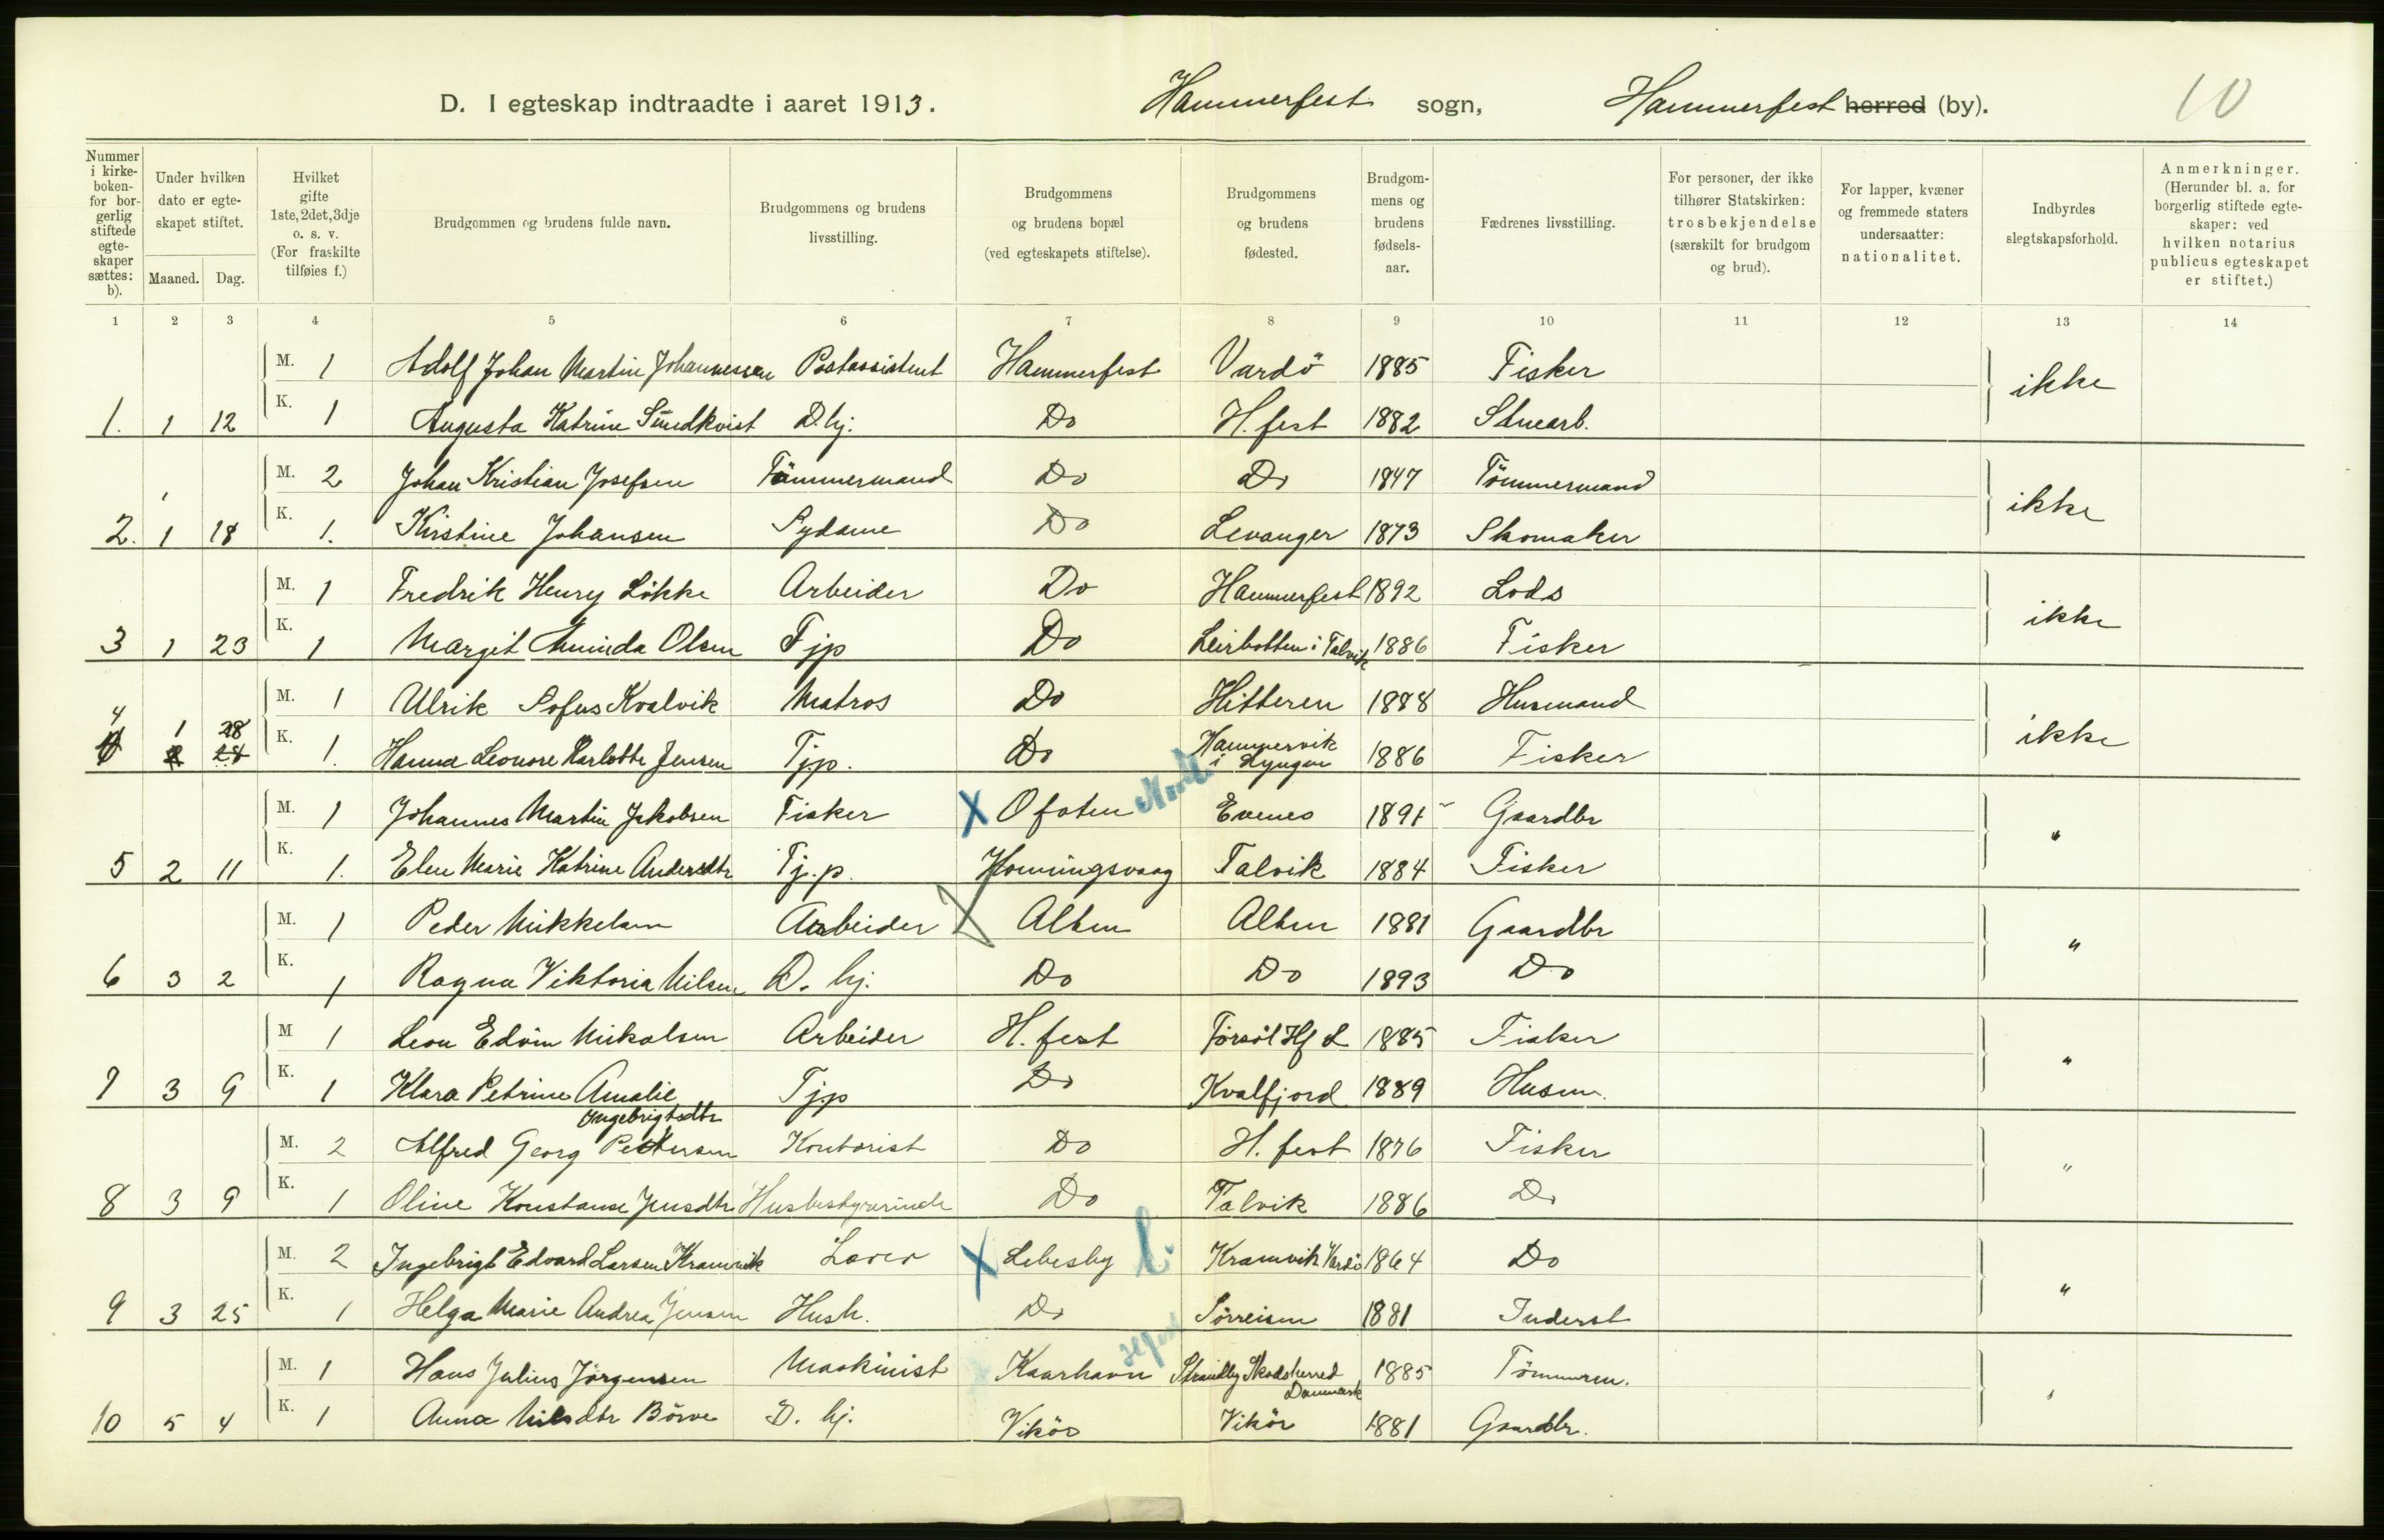 D. I egteskap indtraadte i aaret 1913. Hammerfest sogn, Hammerfest herred (by). 10
Nummer i kirke-boken- for bor-gerlig stiftede egte-skaper sættes: b).
Under hvilken dato er egte-skapet stiftet.
Maaned. Dag.
Hvilket gifte 1ste, 2det, 3dje o. s. v. (For fraskilte tilføies f.)
Brudgommen og brudens fulde navn.
Brudgommens og brudens livsstilling.
Brudgommens og brudens bopæl (ved egteskapets stiftelse).
Brudgommens og brudens fødested.
Brudgom-mens og brudens fødsels-aar.
Fædrenes livsstilling.
For personer, der ikke tilhører Statskirken: trosbekjendelse (særskilt for brudgom og brud).
For lapper, kvæner og fremmede staters undersaatter: nationalitet.
Indbyrdes slegtskapsforhold.
Anmerkninger. (Herunder bl. a. for borgerlig stiftede egte-skaper: ved hvilken notarius publicus egteskapet er stiftet.)
1 2 3 4 5 6 7 8 9 10 11 12 13 14
M. 1 Adolf Johan Martin Johannessen Postassistent Hammerfest Vardö 1885 Fisker ikke
1. 1 12 K. 1 Augusta Katrine Sundkvist D. hj. Do H. fest 1882 Stuearb.
M. 2 Johan Kristian Josefsen Tömmermand Do Do 1847 Tömmermand ikke
2. 1 18 K. 1. Kirstine Johansen Sydame Do Levanger 1873 Skomaker
M. 1 Fredrik Henry Lökke Arbeider Do Hammerfest 1892 Lods ikke
3 1 23 K. 1 Margit Aminda Olsen Tjp Do Leirbotten i Talvik 1886 Fisker
M. 1 Ulrik Sofus Kvalvik Matros Do Hitteren 1888 Husmand ikke
4 1 28 K. 1. Hanna Leonore Karlotte Jensen Tjp. Do Hamnervik i Lyngen 1886 Fisker
M. 1 Johannes Martin Jakobsen Fisker X Ofoten Evenes 1891 Gaardbr "
5 2 11 K. 1. Elen Marie Katrine Andersdtr Tj. p. Honningsvaag Talvik 1884 Fisker
M. 1 Peder Mikkelsen Arbeider X Alten Alten 1881 Gaardbr "
6 3 2 K. 1 Ragna Viktoria Nilsen D. hj. Do Do 1893 Do
M 1 Leon Edvin Mikalsen Arbeider H. fest Forsöl Hf L 1885 Fisker "
7 3 9 K. 1 Klara Petrine Amalie Ingebrigtsdtr Tjp Do Kvalfjord 1889 Husm.
M. 2 Alfred Georg Pettersen Kontorist Do H. fest 1876 Fisker "
8 3 9 K. 1 Oline Konstanse Jensdtr Husbestyrerinde Do Talvik 1886 Do
M. 2 Ingebrigt Edvard Larsen Kramvik Lærer X Lebesby L. Kramvik Vardö 1864 Do "
9 3 25 K. 1 Helga Marie Andrea Jensen Hush. Do Sörreisen 1881 Inderst
M. 1 Hans Julius Jörgensen Maskinist Kaarhavn Strandby Skodsherred Danmark 1885 Tömmerm. "
10 5 4 K. 1 Anna Nilsdtr Börve D. hj. Vikör Vikör 1881 Gaardbr.